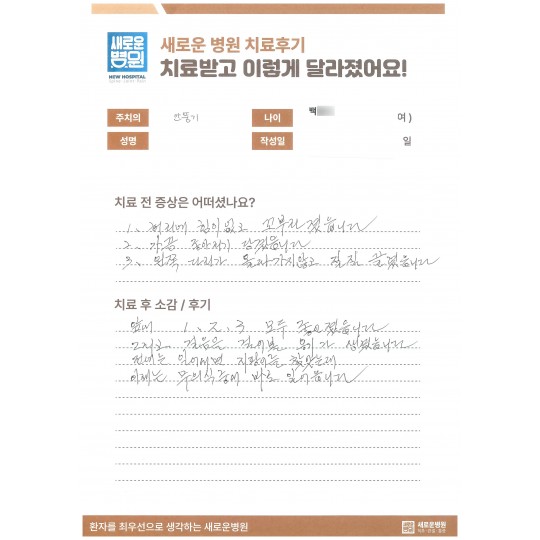 새로운
병원
NEW HOSPITAL
새로운 병원 치료후기
치료받고 이렇게 달라졌어요!
주치의
나이 백 여 )
성명
작성일 일
치료 전 증상은 어떠셨나요?
1. 허리에 힘이 없고 꼬부라졌습니다
2. 가끔 주저앉기
3. 왼쪽 다리가 돌아가지않고 질질 끌렸습니다
치료 후 소감 / 후기
앞에 1, 2, 3 모두 좋아졌습니다
걸음을 걸어볼 용기가 생겼습니다
전에는 일어서면 지팡이를 찾았는데
이제는 무의식중에 바로 일어섭니다
환자를 최우선으로 생각하는 새로운병원
새로운병원